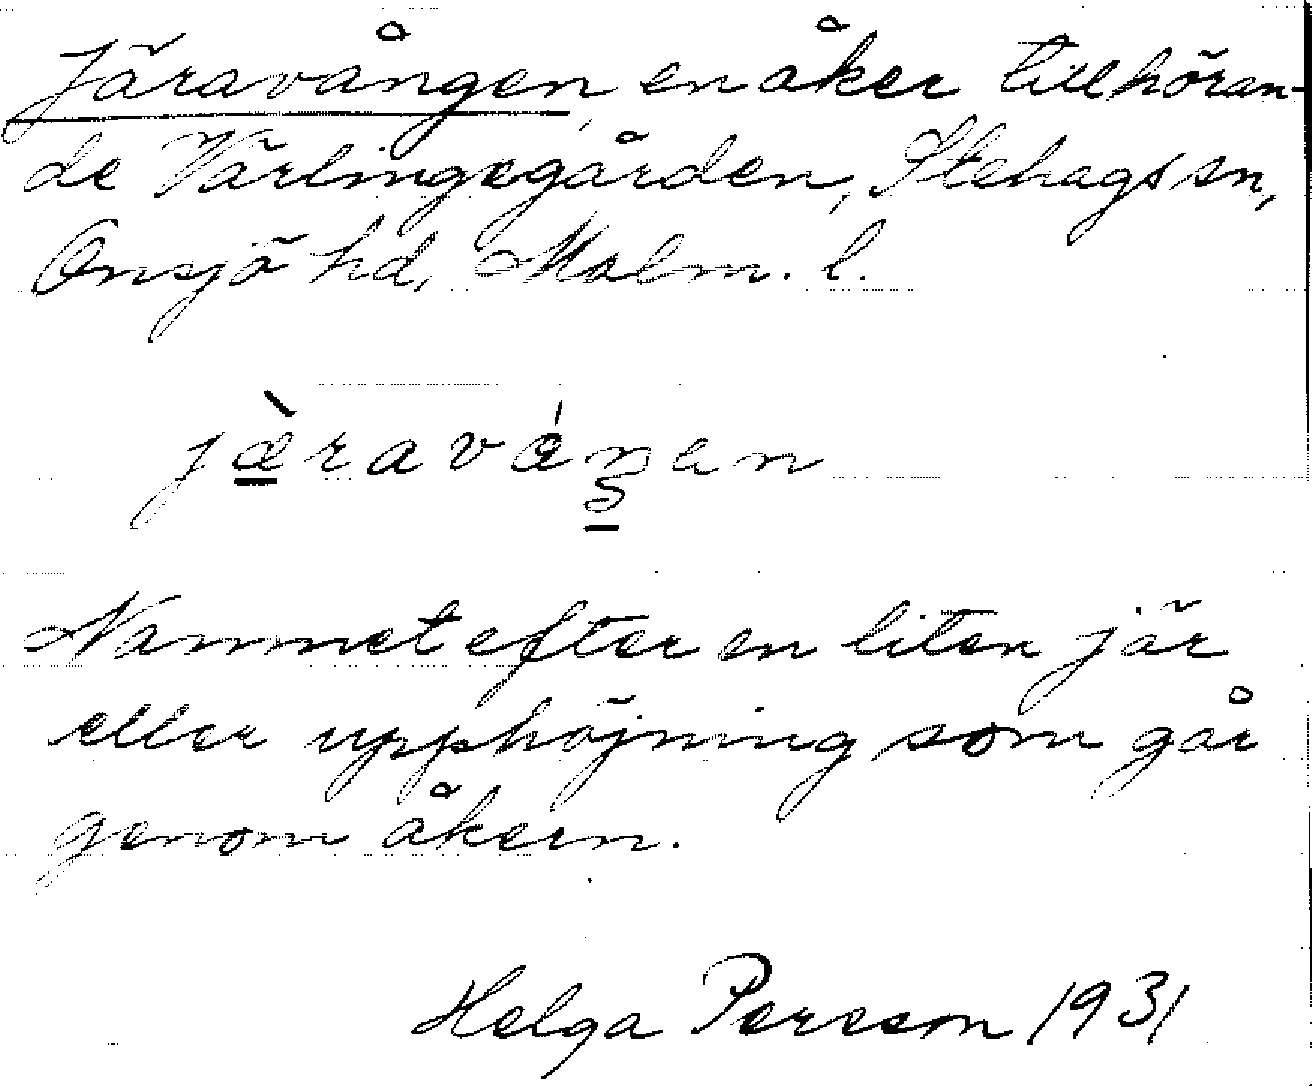 Järavången, en åker tillhöran-
de Värlingegården, Stehags sn,
Onsjö hd, Malm. l.
Namnet efter en liten jär
eller upphöjning som går
genom åkern.
Helga Persson 1931